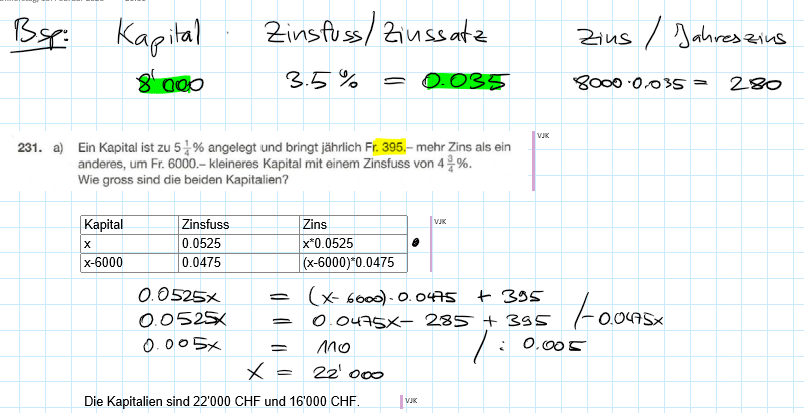 Bsp: Kapital Zinsfuss/Zinssatz Zins / Jahreszins
8'000 3.5% = 0.035 8000·0.035 = 280
VJK
231. a) Ein Kapital ist zu 5 1/4 % angelegt und bringt jährlich Fr. 395.– mehr Zins als ein
anderes, um Fr. 6000.– kleineres Kapital mit einem Zinsfuss von 4 3/4 %.
Wie gross sind die beiden Kapitalien?
Kapital Zinsfuss Zins VJK
x 0.0525 x*0.0525
x-6000 0.0475 (x-6000)*0.0475
0.0525x = (x-6000)·0.0475 + 395
0.0525x = 0.0475x - 285 + 395 /-0.0475x
0.005x = 110 / : 0.005
x = 22'000
Die Kapitalien sind 22'000 CHF und 16'000 CHF. VJK